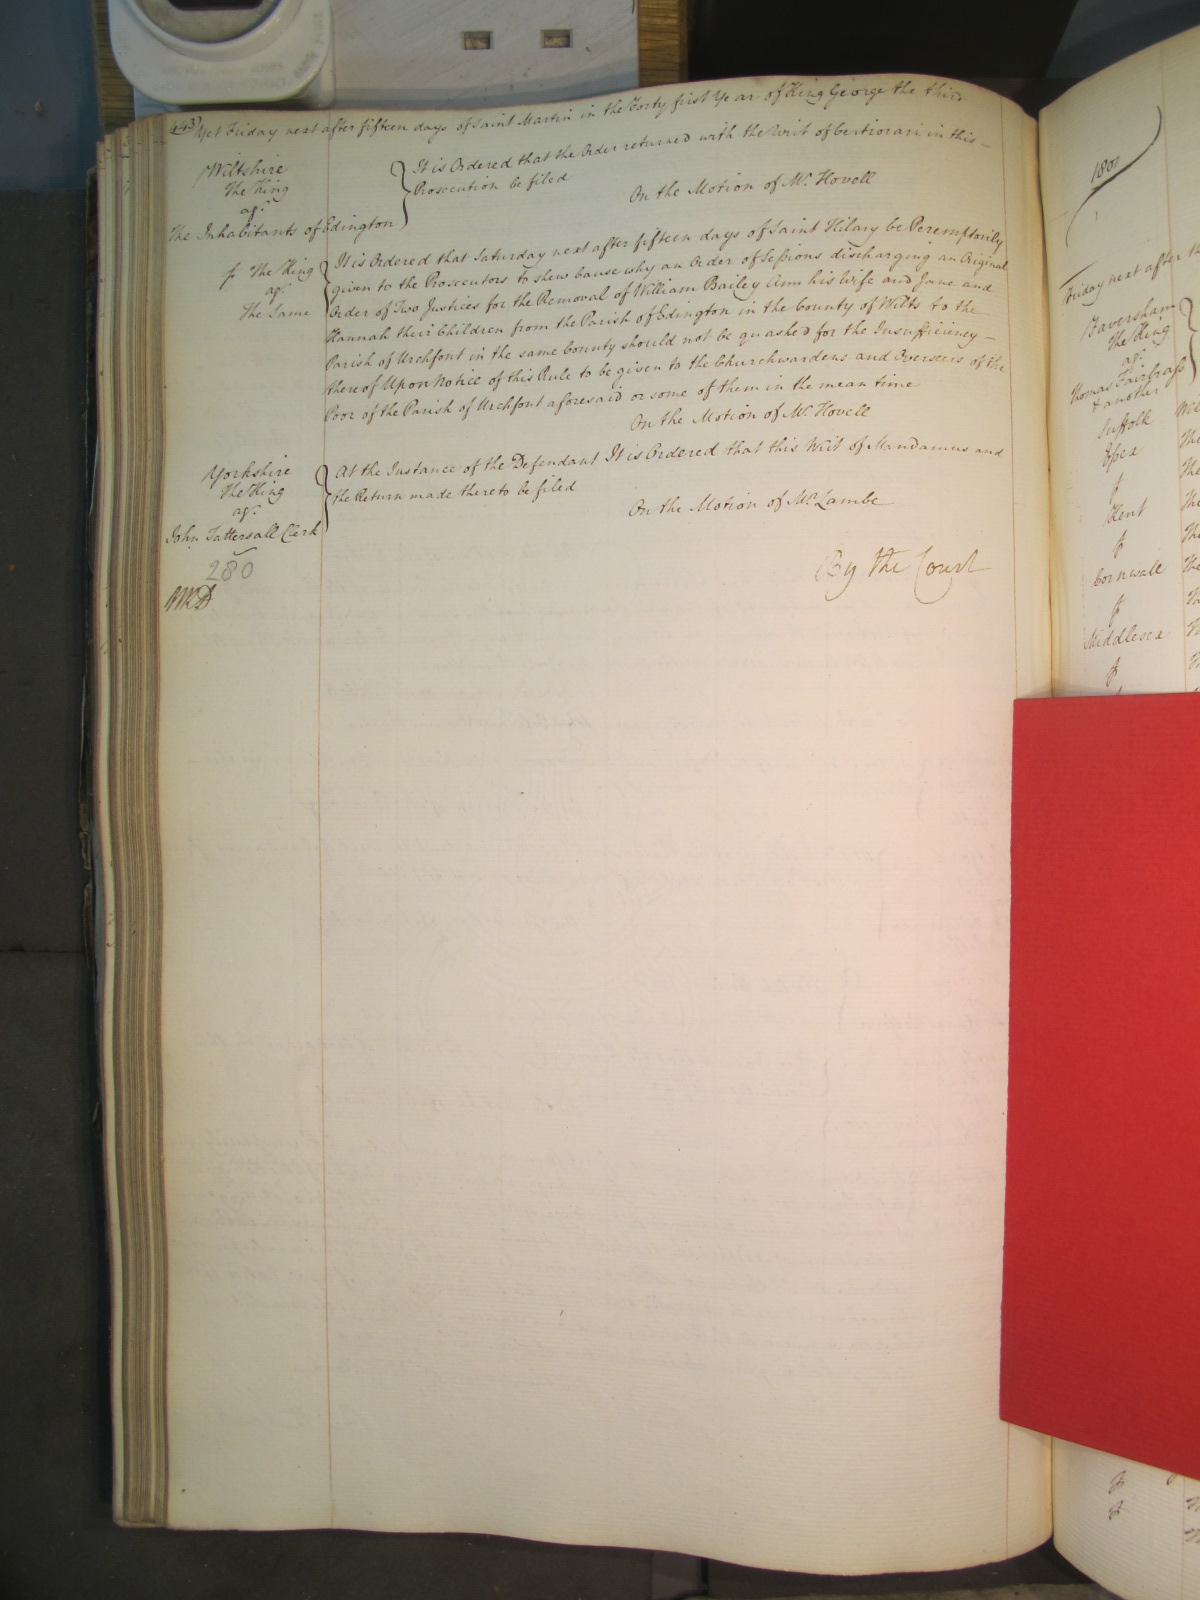 443 Yet Friday next after fifteen days of Saint Martin in the Forty first Year of King George the third
Wiltshire
The King
agt.
The Inhabitants of Edington
It is Ordered that the Order returned with the Writ of Certiorari in this
Prosecution be filed
On the Motion of Mr. Hovell
The King
agt.
The Same
It is Ordered that Saturday next after fifteen days of Saint Hilary be Peremptorily
given to the Prosecutors to shew Cause why an Order of Sessions discharging an Original
Order of Two Justices for the Removal of William Bailey Ann his Wife and Jane and
Hannah their Children from the Parish of Edington in the County of Wilts to the
Parish of Urchfont in the same County should not be quashed for the Insufficiency
thereof Upon Notice of this Rule to be given to the Churchwardens and Overseers of the
Poor of the Parish of Urchfont aforesaid or some of them in the mean time
On the Motion of Mr. Hovell
Yorkshire
The King
agt.
John Tattersall Clerk
At the Instance of the Defendant It is Ordered that this Writ of Mandamus and
the Return made thereto be filed
On the Motion of Mr. Lambe
280
By the Court
1801
Friday next after
Faversham
The King
agt.
Thomas Fairbrass
& another
Suffolk
Essex
Kent
Cornwall
Middlesex